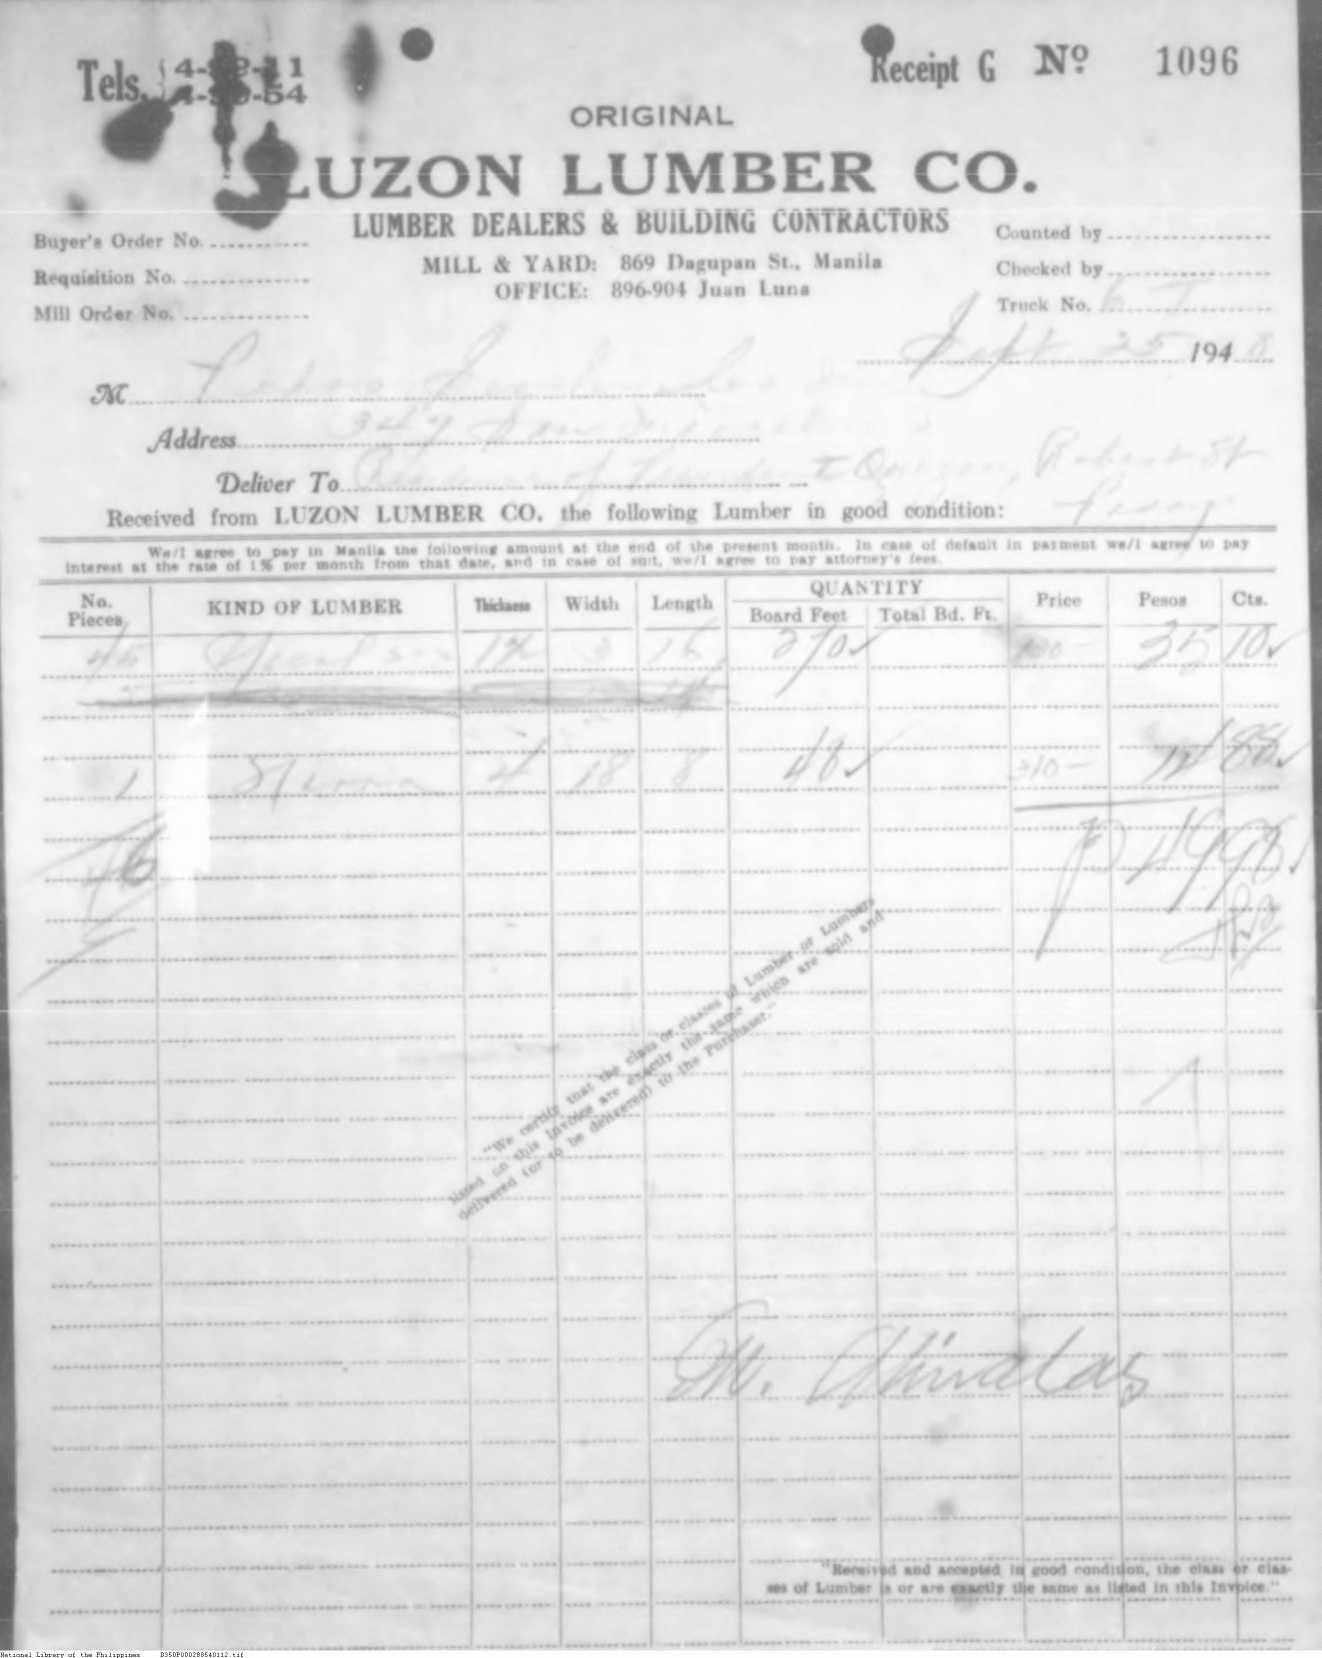 Tels.
Receipt G No 1096
ORIGINAL
LUZON LUMBER CO.
LUMBER DEALERS & BUILDING CONTRACTORS
MILL & YARD: 869 Dagupan St., Manila
OFFICE: 896-904 Juan Luna
Buyer's Order No.
Requisition No.
Mill Order No.
Counted by
Checked by
Truck No.
Sept 25 1948
M
Address 347
Deliver To Residence of President Quezon, Robert St
Pasay
Received from LUZON LUMBER CO. the following Lumber in good condition:
We/I agree to pay in Manila the following amount at the end of the present month. In case of default in payment we/I agree to pay
interest at the rate of 1% per month from that date, and in case of suit, we/I agree to pay attorney's fees.
No. Pieces KIND OF LUMBER Thickness Width Length QUANTITY Board Feet Total Bd. Ft. Price Pesos Cts.
45 3 16 270 130- 35 10
1 4 18 8 48 310- 14 88
46 ₱ 49 98
"We certify that the class or classes of Lumber or Lumbers
listed on this Invoice are exactly the same which are sold and
delivered (or to be delivered) to the Purchaser."
"Received and accepted in good condition, the class or clas-
ses of Lumber is or are exactly the same as listed in this Invoice."
National Library of the Philippines D350P000288540112.tif